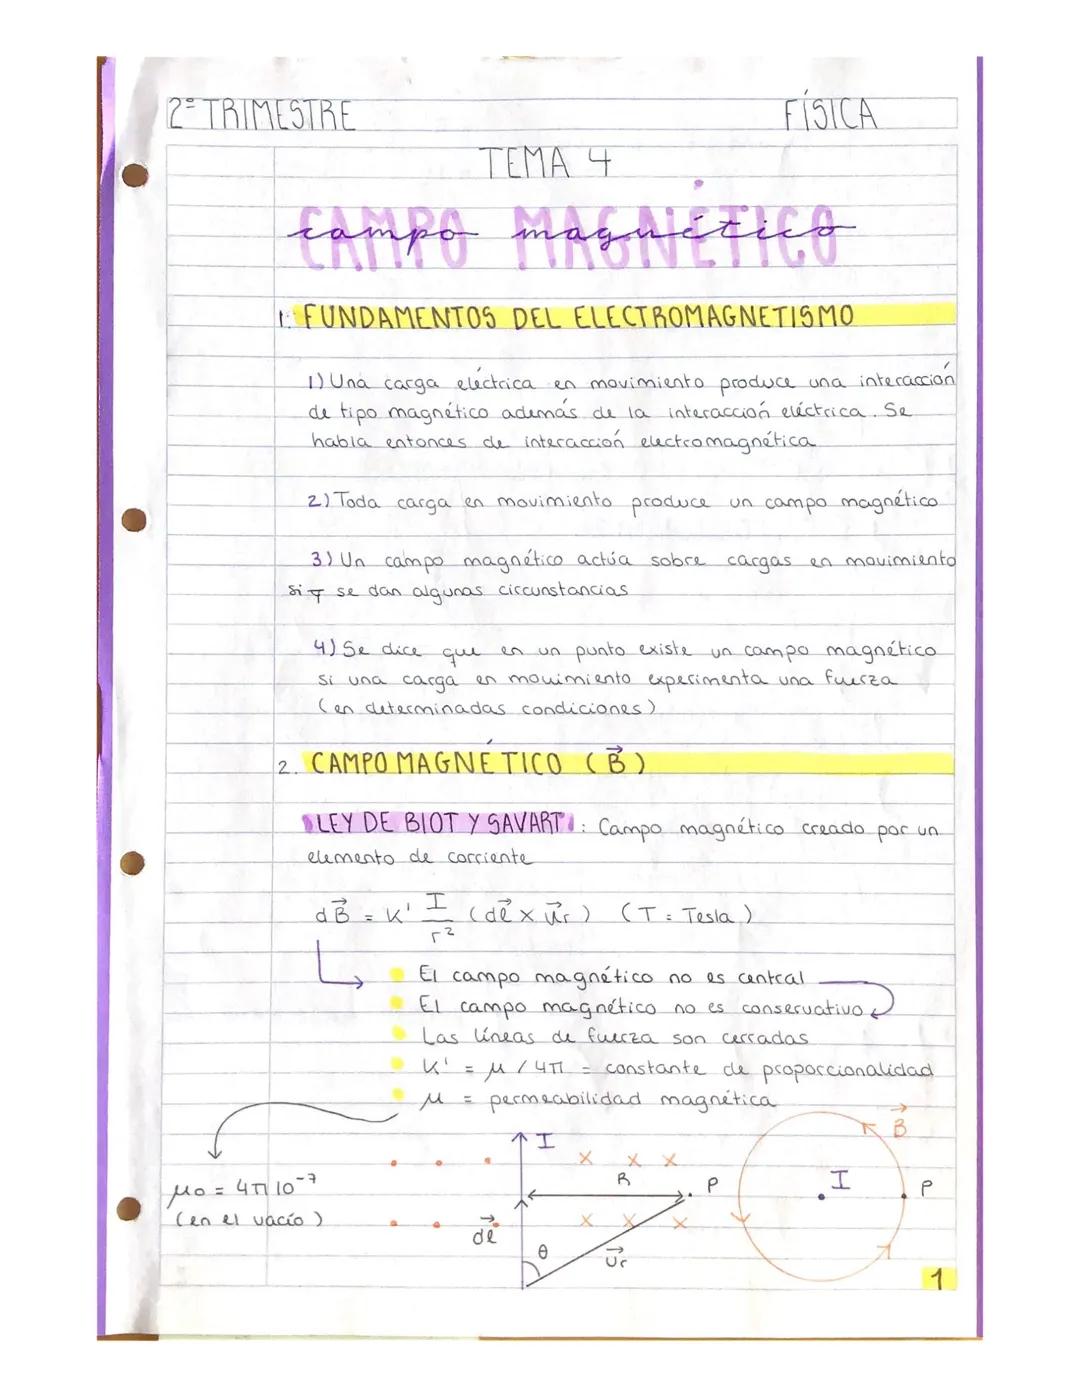 2º TRIMESTRE FÍSICA
TEMA 4
CAMPO MAGNÉTICO
campo magnético
1. FUNDAMENTOS DEL ELECTROMAGNETISMO
1) Una carga eléctrica en movimiento produce una interacción
de tipo magnético además de la interacción eléctrica. Se
habla entonces de interacción electromagnética
2) Toda carga en movimiento produce un campo magnético
3) Un campo magnético actúa sobre cargas en movimiento
si se dan algunas circunstancias
4) Se dice que en un punto existe un campo magnético
si una carga en movimiento experimenta una fuerza
(en determinadas condiciones)
2. CAMPO MAGNÉTICO (B⃗)
LEY DE BIOT Y SAVART: Campo magnético creado por un
elemento de corriente
dB⃗ = K' I/r² (dℓ⃗ x u⃗r) (T = Tesla)
El campo magnético no es central
El campo magnético no es conservativo
Las líneas de fuerza son cerradas
K' = μ / 4π = constante de proporcionalidad
μ = permeabilidad magnética
μ0 = 4π 10⁻⁷
(en el vacío)
I
x x x
R
P
x x x
dℓ⃗
θ
u⃗r
B⃗
I
P
1